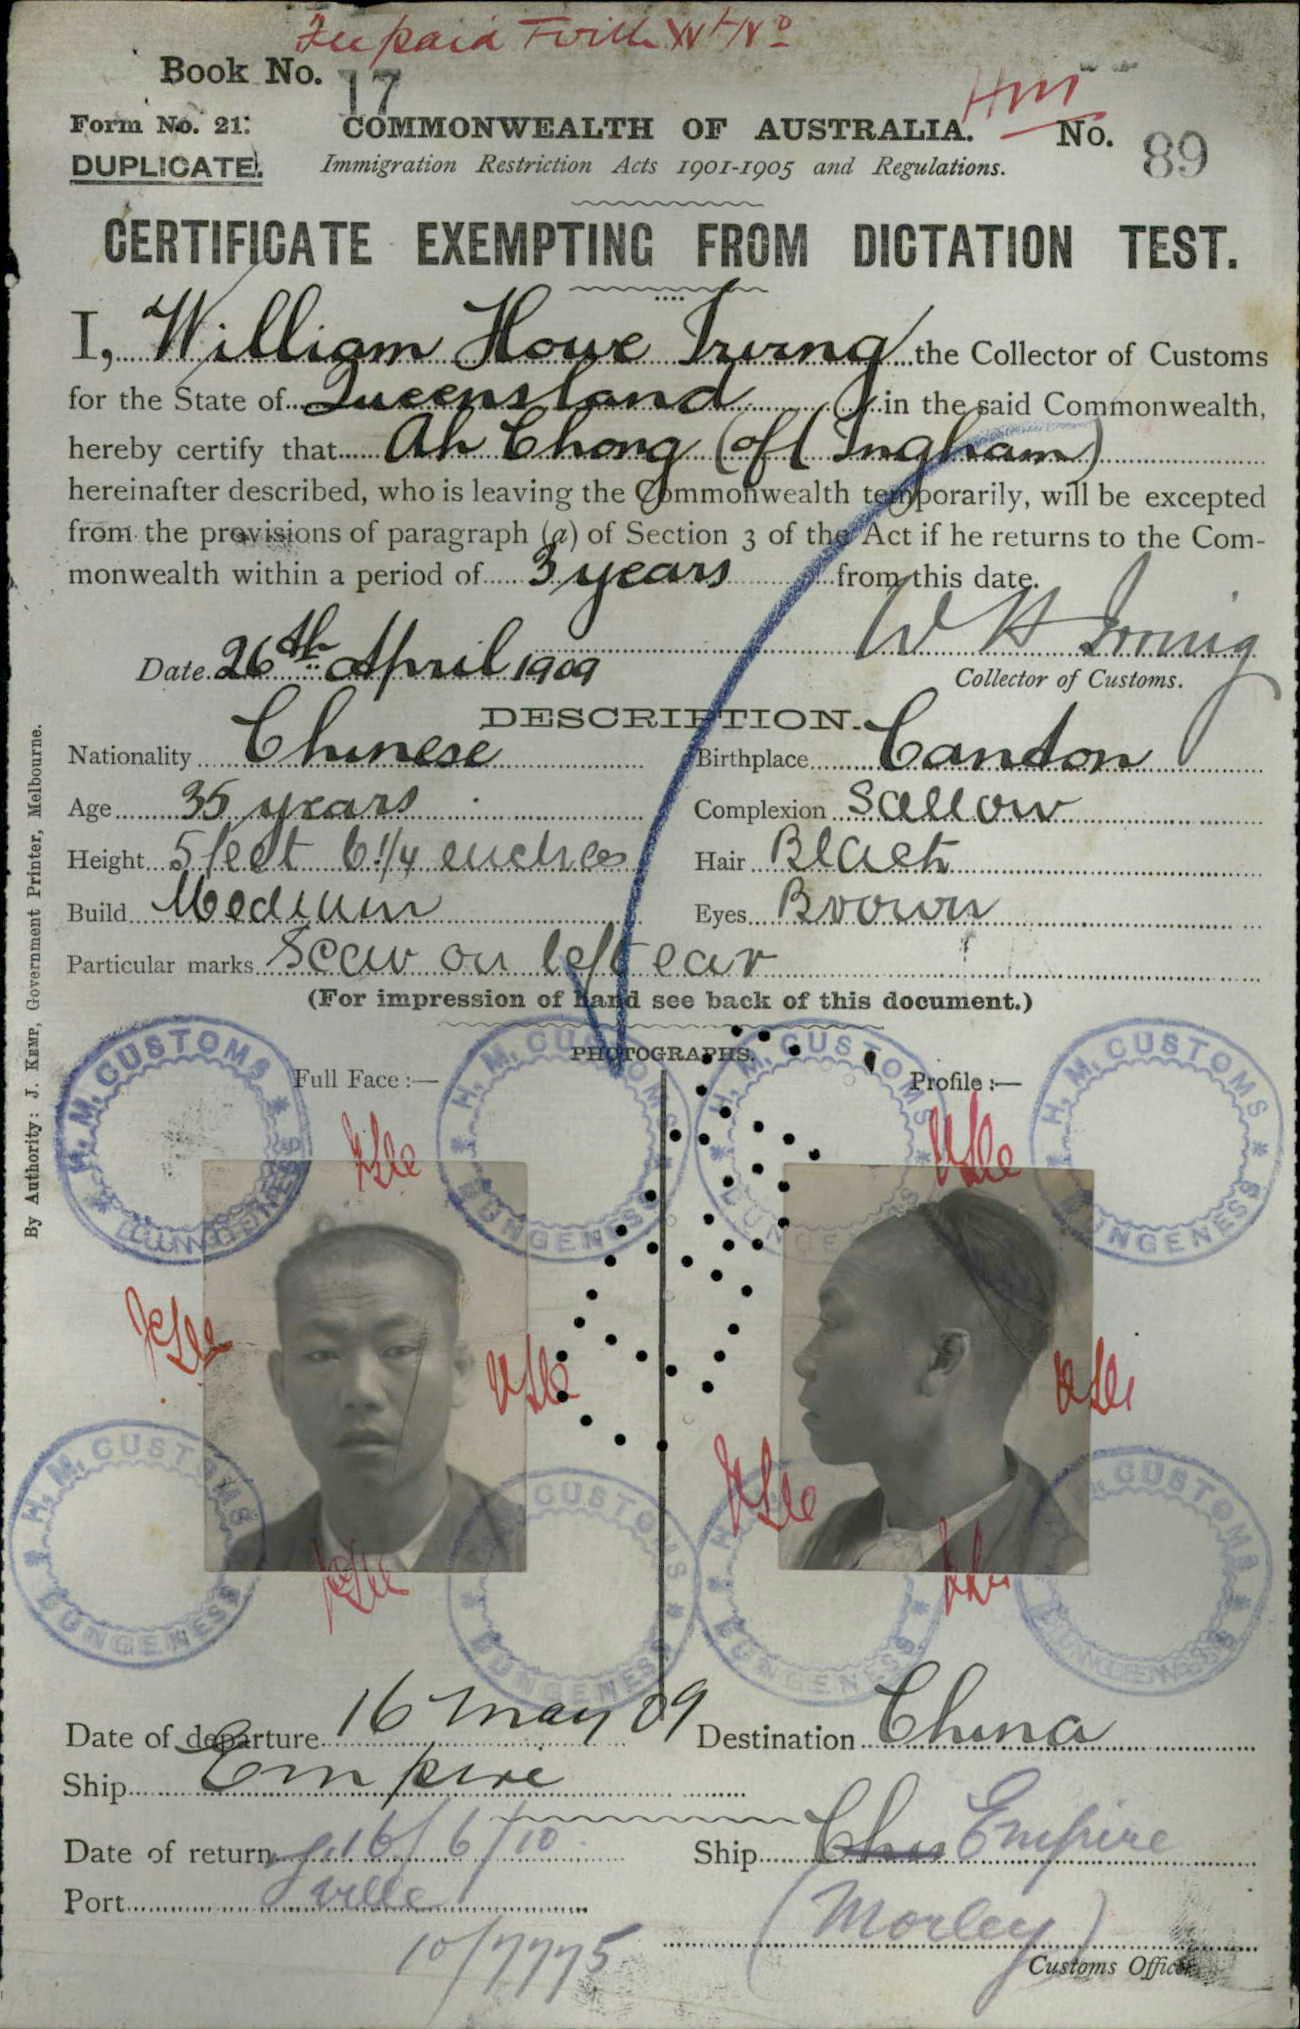 Fee paid
Book No. 17
Form No. 21.
COMMONWEALTH OF AUSTRALIA.
No. 89
DUPLICATE.
Immigration Restriction Acts 1901-1905 and Regulations.
CERTIFICATE EXEMPTING FROM DICTATION TEST.
I, William Howe Irving the Collector of Customs
for the State of Queensland in the said Commonwealth,
hereby certify that Ah Chong (of Ingham)
hereinafter described, who is leaving the Commonwealth temporarily, will be excepted
from the provisions of paragraph (a) of Section 3 of the Act if he returns to the Com-
monwealth within a period of 3 years from this date.
W H Irving
Date 26th April 1909
Collector of Customs.
DESCRIPTION.
Nationality Chinese
Birthplace Canton
Age 35 years
Complexion Sallow
Height 5 feet 6 1/4 inches
Hair Black
Build Medium
Eyes Brown
Particular marks Scar on left ear
(For impression of hand see back of this document.)
PHOTOGRAPHS.
Full Face :—
Profile :—
H. M. CUSTOMS * DUNGENESS *
H. M. CUSTOMS * DUNGENESS *
H. M. CUSTOMS * DUNGENESS *
H. M. CUSTOMS * DUNGENESS *
H. M. CUSTOMS * DUNGENESS *
H. M. CUSTOMS * DUNGENESS *
H. M. CUSTOMS * DUNGENESS *
H. M. CUSTOMS * DUNGENESS *
Date of departure 16 May 09
Destination China
Ship Empire
Date of return 16/6/10
Ship Empire
Port Tville
(Morley)
10/7775
Customs Officer
By Authority: J. KEMP, Government Printer, Melbourne.